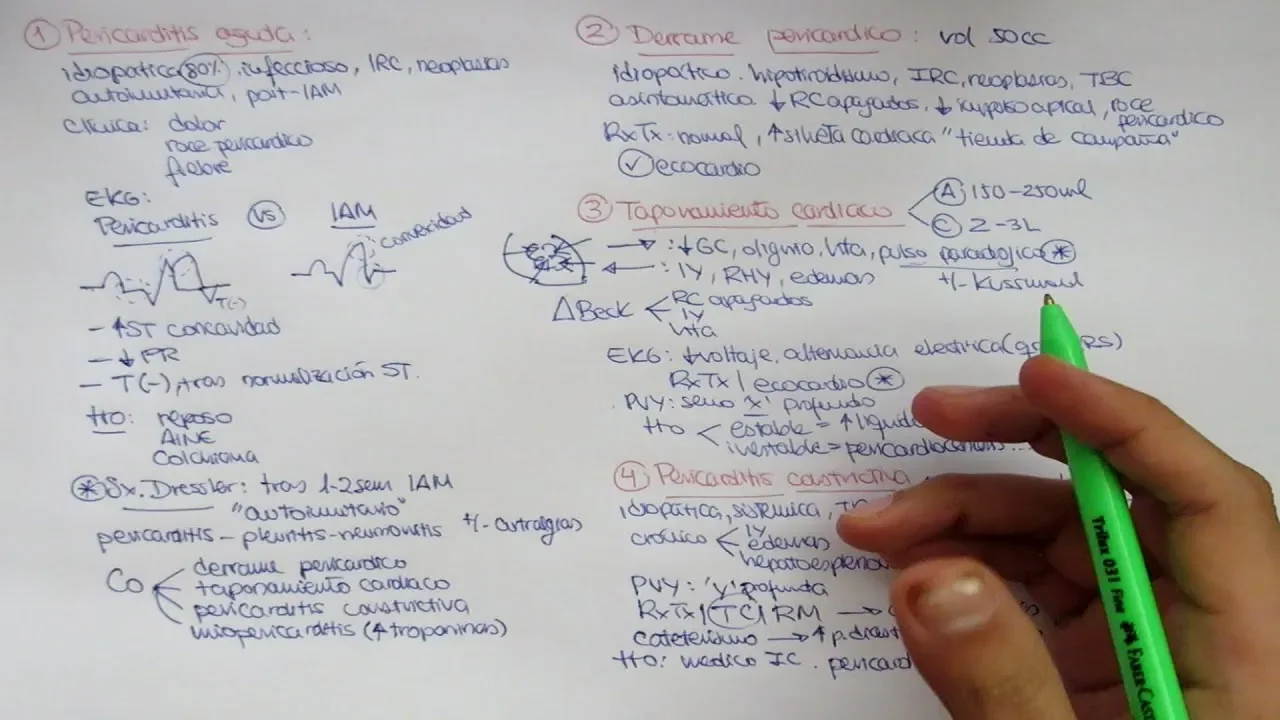 ① Pericarditis aguda:
idiopatica (80%), infeccioso, IRC, neoplasias
autoinmunitaria, post-IAM
Clínica: dolor
roce pericardico
fiebre
EKG:
Pericarditis VS IAM
convexidad
T(-)
- ↑ST concavidad
- ↓PR
- T(-), tras normalización ST.
tto: reposo
AINE
Colchicina
* Sx. Dressler: tras 1-2 sem IAM
"autoinmune"
pericarditis - pleuritis - neumonitis +/- artralgias
Co < derrame pericardico
taponamiento cardiaco
pericarditis constrictiva
miopericarditis (↑troponinas)
② Derrame pericardico: vol 50cc
idiopático. hipotiroidismo, IRC, neoplasias, TBC
asintomático ↓RC apagados, ↓impulso apical, roce
pericardico
RxTx: normal, ↑silueta cardiaca "tienda de campaña"
✓ ecocardio
③ Taponamiento cardiaco < A 150-250ml
C 2-3L
→ : ↓GC, oliguria, hta, pulso paradojico *
← : IY, RHY, edemas +/- Kussmaul
△Beck < RC apagados
IY
hta
EKG: ↓voltaje, alternancia electrica (
RS)
RxTx | ecocardio *
PVY: seno 'x' profundo
tto < estable = ↑liquido
inestable = pericardiocentesis...
④ Pericarditis constrictiva
idiopática, sistemica,
crónico < IY
edemas
hepatoesplenom
PVY: 'y' profunda
RxTx | TC | RM →
cateterismo → ↑p. diast
tto: medico IC. pericard
Trilux 031 Fine FABER-CAST